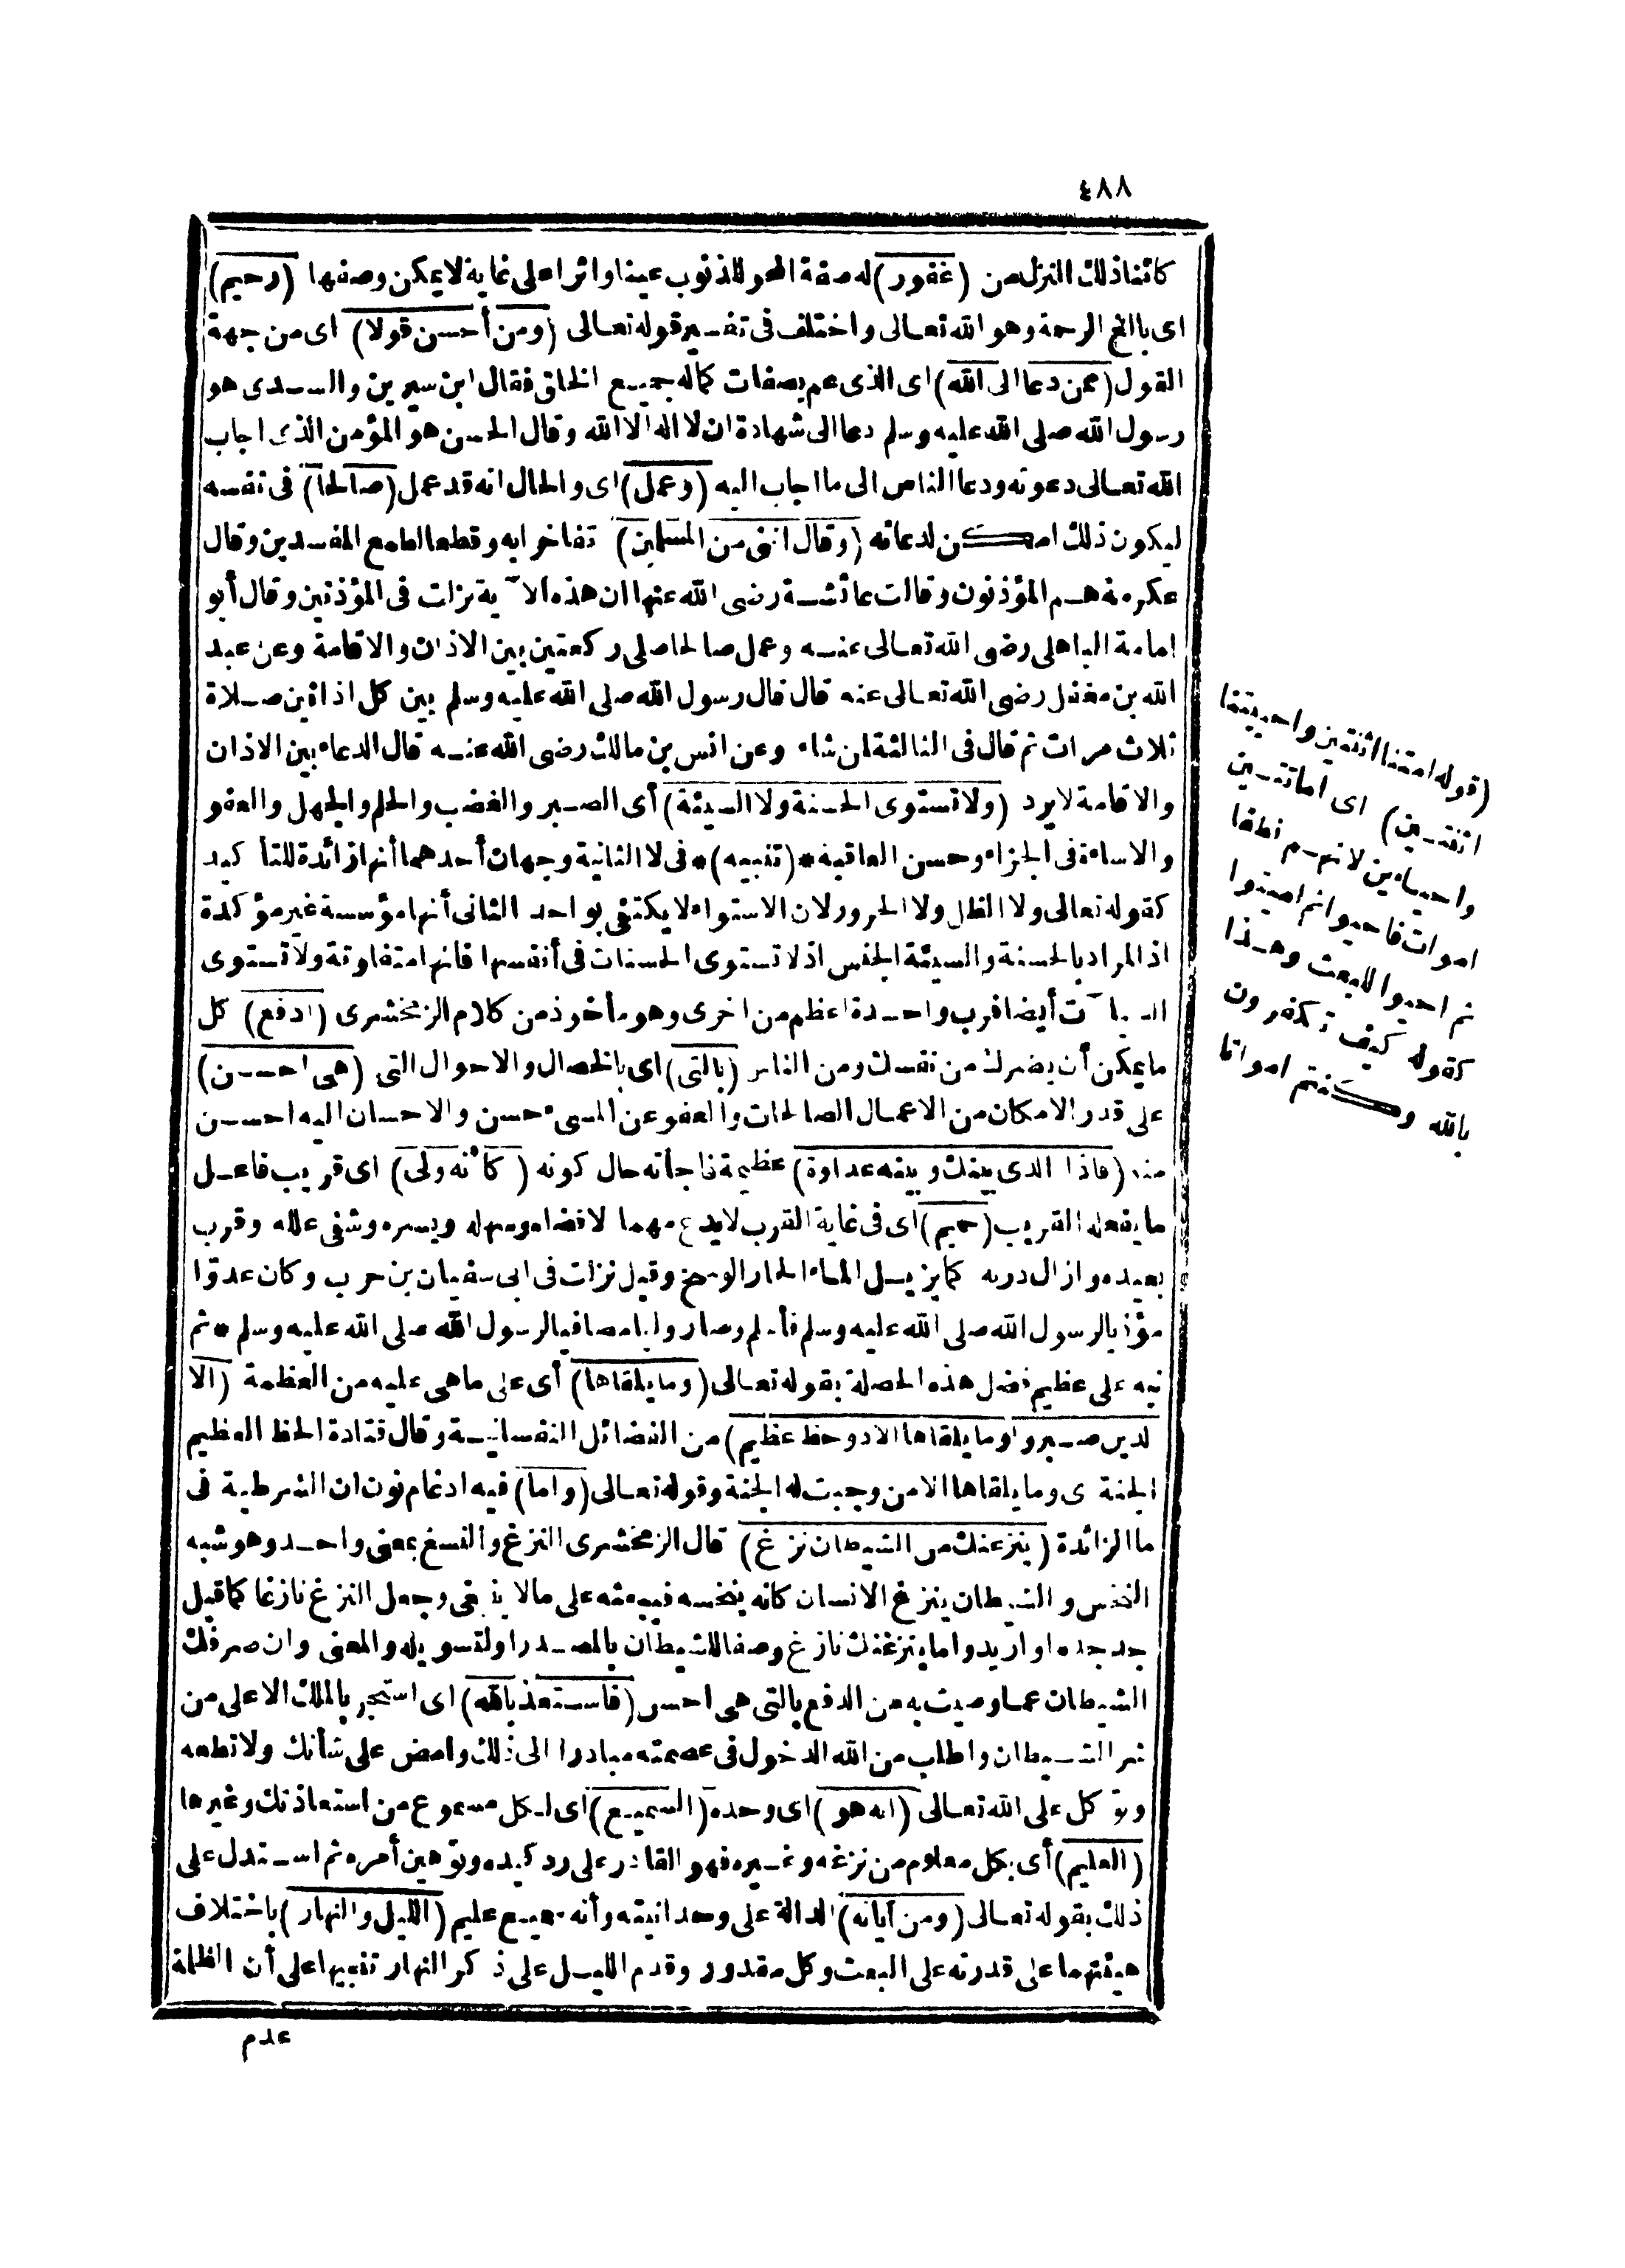 ٤٨٨
كائنا ذلك النزل من (غفور) له صفة المحو للذنوب عينا واثرا على غاية لا يمكن وصفها (رحيم)
اى بالغ الرحمة وهو الله تعالى واختلف فى تفسير قوله تعالى (ومن أحسن قولا) اى من جهة
القول (ممن دعا الى الله) اى الذى عم بصفات كماله جميع الخلق فقال ابن سيرين والسدى هو
رسول الله صلى الله عليه وسلم دعا الى شهادة ان لا اله الا الله وقال الحسن هو المؤمن الذى اجاب
الله تعالى دعوته ودعا الناس الى ما اجاب اليه (وعمل) اى والحال انه قد عمل (صالحا) فى نفسه
ليكون ذلك امكن لدعائه (وقال اننى من المسلمين) تفاخرا به وقطعا لطمع المفسدين وقال
عكرمة هم المؤذنون وقالت عائشة رضى الله عنها ان هذه الآية نزلت فى المؤذنين وقال أبو
امامة الباهلى رضى الله تعالى عنه وعمل صالحا صلى ركعتين بين الاذان والاقامة وعن عبد
الله بن مغفل رضى الله تعالى عنه قال قال رسول الله صلى الله عليه وسلم بين كل اذانين صلاة
ثلاث مرات ثم قال فى الثالثة لمن شاء وعن انس بن مالك رضى الله عنه قال الدعاء بين الاذان
والاقامة لا يرد (ولا تستوى الحسنة ولا السيئة) أى الصبر والغضب والحلم والجهل والعفو
والاساءة فى الجزاء وحسن العاقبة *(تنبيه)* فى لا الثانية وجهان أحدهما أنها زائدة للتأكيد
كقوله تعالى ولا الظل ولا الحرور لان الاستواء لا يكتفى بواحد الثانى أنها مؤسسة غير مؤكدة
اذ المراد بالحسنة والسيئة الجنس اذ لا تستوى الحسنات فى أنفسها فانها متفاوتة ولا تستوى
السيآت أيضا فرب واحدة اعظم من اخرى وهو مأخوذ من كلام الزمخشرى (ادفع) كل
ما يمكن أن يضرك من نفسك ومن الناس (بالتى) اى بالخصال والاحوال التى (هى احسن)
على قدر الامكان من الاعمال الصالحات والعفو عن المسىء حسن والاحسان اليه احسن
منه (فاذا الذى بينك وبينه عداوة) عظيمة فاجأته حال كونه (كأنه ولى) اى قريب فاعل
ما يفعله القريب (حميم) اى فى غاية القرب لا يدع مهما الا قضاه وسهله ويسره وشفى علله وقرب
بعيده وازال درنه كما يزيل الماء الحار الوسخ وقيل نزلت فى ابى سفيان بن حرب وكان عدوّا
مؤذيا لرسول الله صلى الله عليه وسلم فأسلم وصار وليا مصافيا لرسول الله صلى الله عليه وسلم * ثم
نبه على عظيم فضل هذه الخصلة بقوله تعالى (وما يلقاها) أى على ما هى عليه من العظمة (الا
الذين صبروا وما يلقاها الا ذو حظ عظيم) من الفضائل النفسانية وقال قتادة الحظ العظيم
الجنة ى وما يلقاها الا من وجبت له الجنة وقوله تعالى (واما) فيه ادغام نون ان الشرطية فى
ما الزائدة (ينزغنك من الشيطان نزغ) قال الزمخشرى النزغ والنسغ بمعنى واحد وهو شبه
النخس والشيطان ينزغ الانسان كانه ينخسه فيبعثه على ما لا ينبغى وجعل النزغ نازغا كما قيل
جد جده او اريد واما ينزغنك نازغ وصفا للشيطان بالمصدر او لتسويله والمعنى وان صرفك
الشيطان عما وصيت به من الدفع بالتى هى احسن (فاستعذ بالله) اى استجر بالملك الاعلى من
شر الشيطان واطلب من الله الدخول فى عصمته مبادرا الى ذلك وامض على شأنك ولا تطعه
وتوكل على الله تعالى (انه هو) اى وحده (السميع) اى لكل مسموع من استعاذتك وغيرها
(العليم) أى بكل معلوم من نزغه وغيره فهو القادر على رد كيده وتوهين أمره ثم استدل على
ذلك بقوله تعالى (ومن آياته) الدالة على وحدانيته وأنه سميع عليم (الليل والنهار) باختلاف
هيئتهما على قدرته على البعث وكل مقدور وقدم الليل على ذكر النهار تنبيها على أن الظلمة
عدم
(قوله امتنا اثنتين واحييتنا
اثنتين) اى اماتتين
واحياءين لانهم نطفا
اموات فاحيوا ثم اميتوا
ثم احيوا للبعث وهذا
كقوله كيف تكفرون
بالله وكنتم امواتا